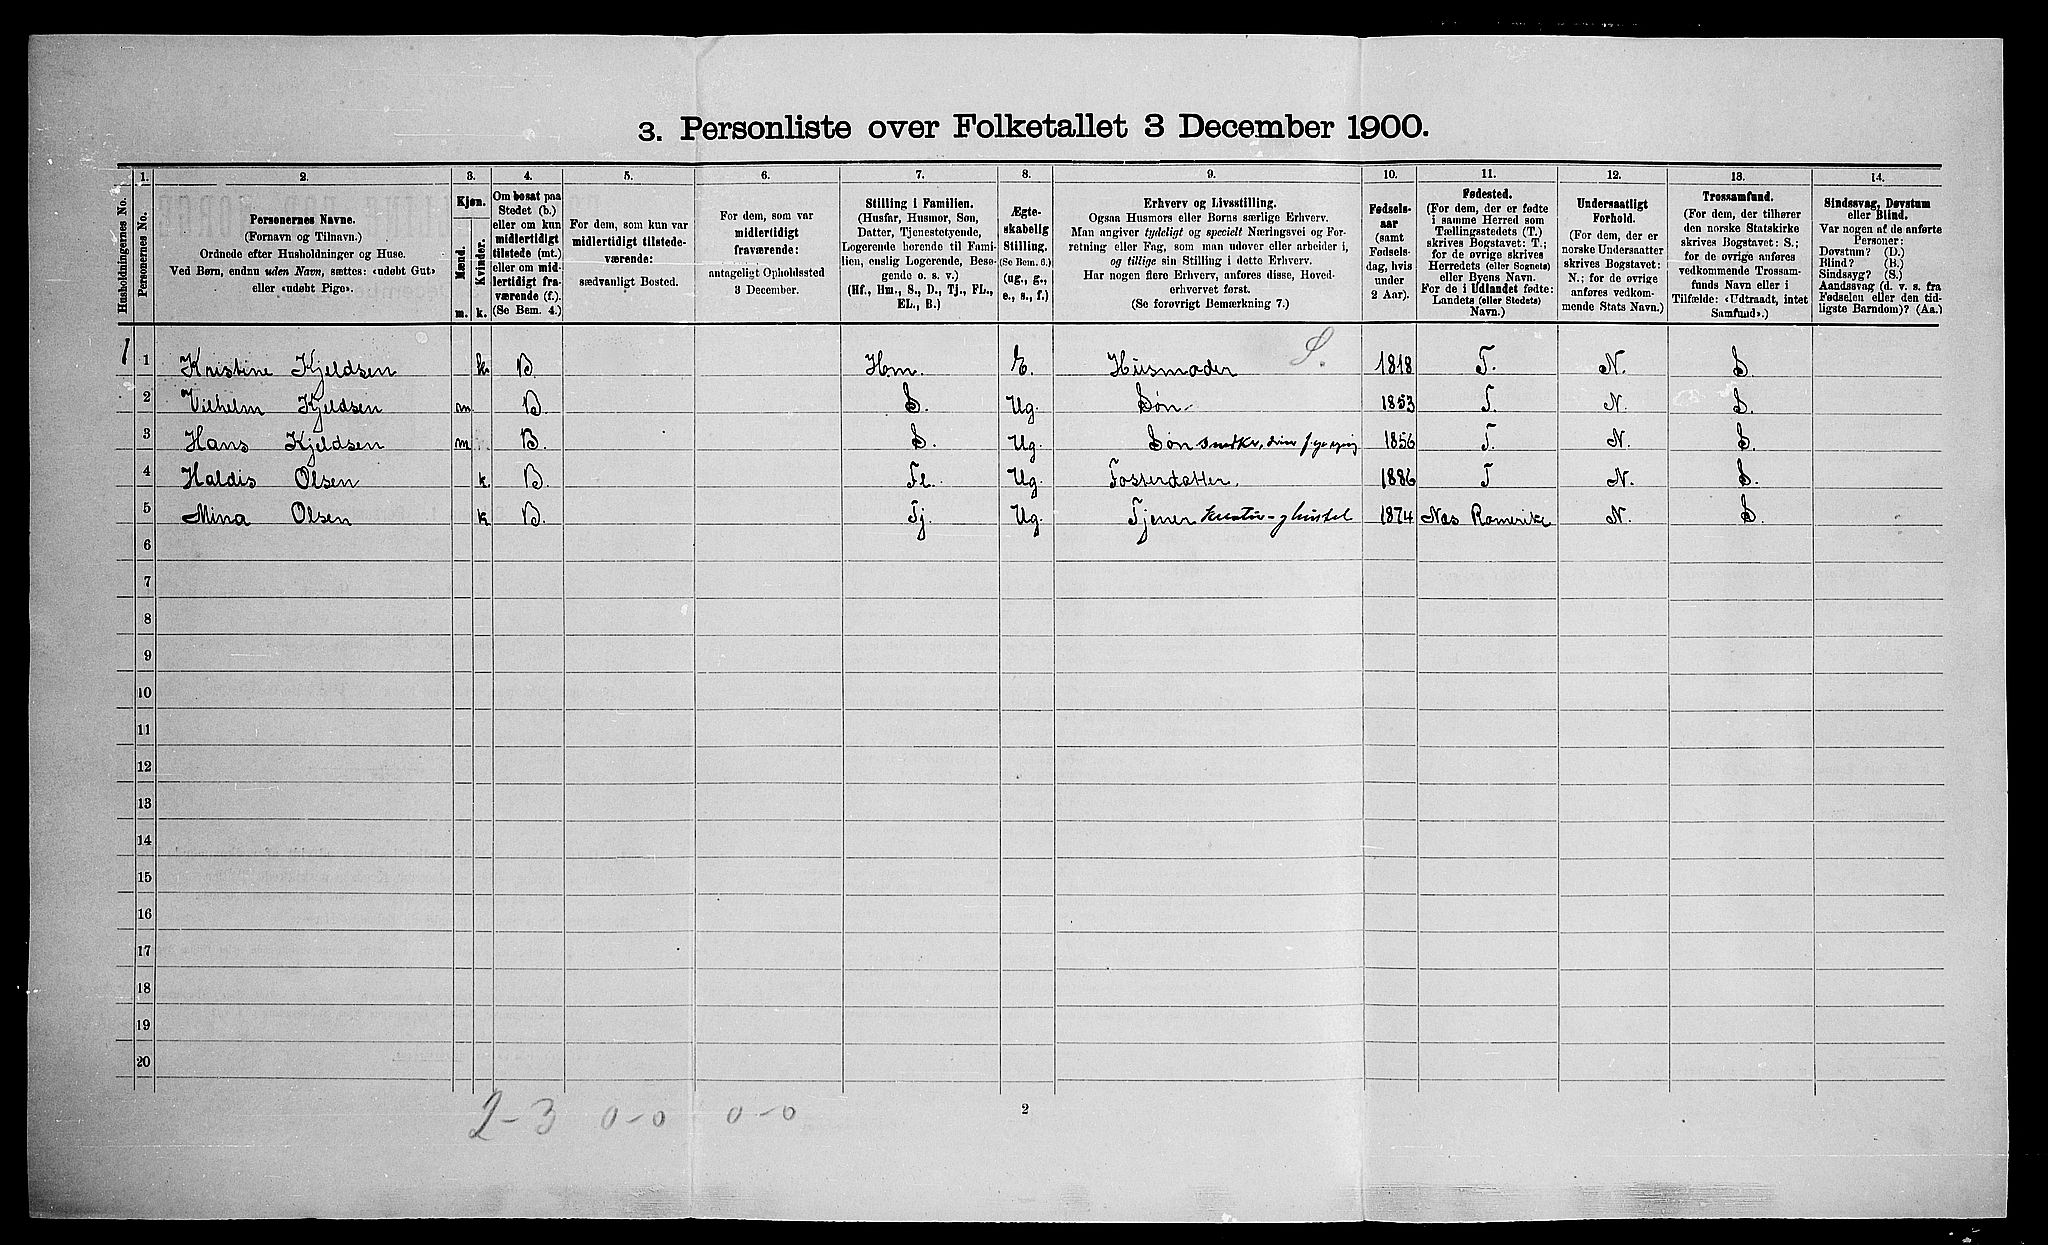 3. Personliste over Folketallet 3 December 1900.
Husholdningernes No.
1.
Personernes No.
2.
Personernes Navne.
(Fornavn og Tilnavn.)
Ordnede efter Husholdninger og Huse.
Ved Børn, endnu uden Navn, sættes: «udøbt Gut»
eller «udøbt Pige».
3.
Kjøn.
Mænd.
Kvinder.
m.
k.
4.
Om bosat paa
Stedet (b.)
eller om kun
midlertidigt
tilstede (mt.)
eller om mid-
lertidigt fra-
værende (f.).
(Se Bem. 4.)
5.
For dem, som kun var
midlertidigt tilstede-
værende:
sædvanligt Bosted.
6.
For dem, som var
midlertidigt
fraværende:
antageligt Opholdssted
3 December.
7.
Stilling i Familien.
(Husfar, Husmor, Søn,
Datter, Tjenestetyende,
Logerende hørende til Fami-
lien, enslig Logerende, Besø-
gende o. s. v.)
(Hf., Hm., S., D., Tj., FL.,
EL., B.)
8.
Ægte-
skabelig
Stilling.
(Se Bem. 6.)
(ug., g.,
e., s., f.)
9.
Erhverv og Livsstilling.
Ogsaa Husmors eller Børns særlige Erhverv.
Man angiver tydeligt og specielt Næringsvei og For-
retning eller Fag, som man udøver eller arbeider i,
og tillige sin Stilling i dette Erhverv.
Har nogen flere Erhverv, anføres disse, Hoved-
erhvervet først.
(Se forøvrigt Bemærkning 7.)
10.
Fødsels-
aar
(samt
Fødsels-
dag, hvis
under
2 Aar).
11.
Fødested.
(For dem, der er fødte
i samme Herred som
Tællingsstedets (T.)
skrives Bogstavet: T.;
for de øvrige skrives
Herredets (eller Sognets)
eller Byens Navn.
For de i Udlandet fødte:
Landets (eller Stedets)
Navn.)
12.
Undersaatligt
Forhold.
(For dem, der er
norske Undersaatter
skrives Bogstavet:
N.; for de øvrige
anføres vedkom-
mende Stats Navn.)
13.
Trossamfund.
(For dem, der tilhører
den norske Statskirke
skrives Bogstavet: S.;
for de øvrige anføres
vedkommende Trossam-
funds Navn eller i
Tilfælde: «Udtraadt, intet
Samfund».)
14.
Sindssvag, Døvstum
eller Blind.
Var nogen af de anførte
Personer:
Døvstum? (D.)
Blind? (B.)
Sindssyg? (S.)
Aandssvag (d. v. s. fra
Fødselen eller den tid-
ligste Barndom)? (Aa.)
S.
1 1 Kristine Kjeldsen k B Hm. E. Husmoder 1818 T. N. S.
2 Vilhelm Kjeldsen m B. S. Ug. Søn 1853 T. N. S.
3 Hans Kjeldsen m B. S. Ug. Søn 1856 T. N. S.
4 Haldis Olsen k. B. Fl. Ug. Fosterdatter. 1886 T N. S.
5 Mina Olsen k B. Tj. Ug. Tjener 1874 Nes Romerike N. S.
6
7
8
9
10
11
12
13
14
15
16
17
18
19
20
2-3 0-0 0-0
2